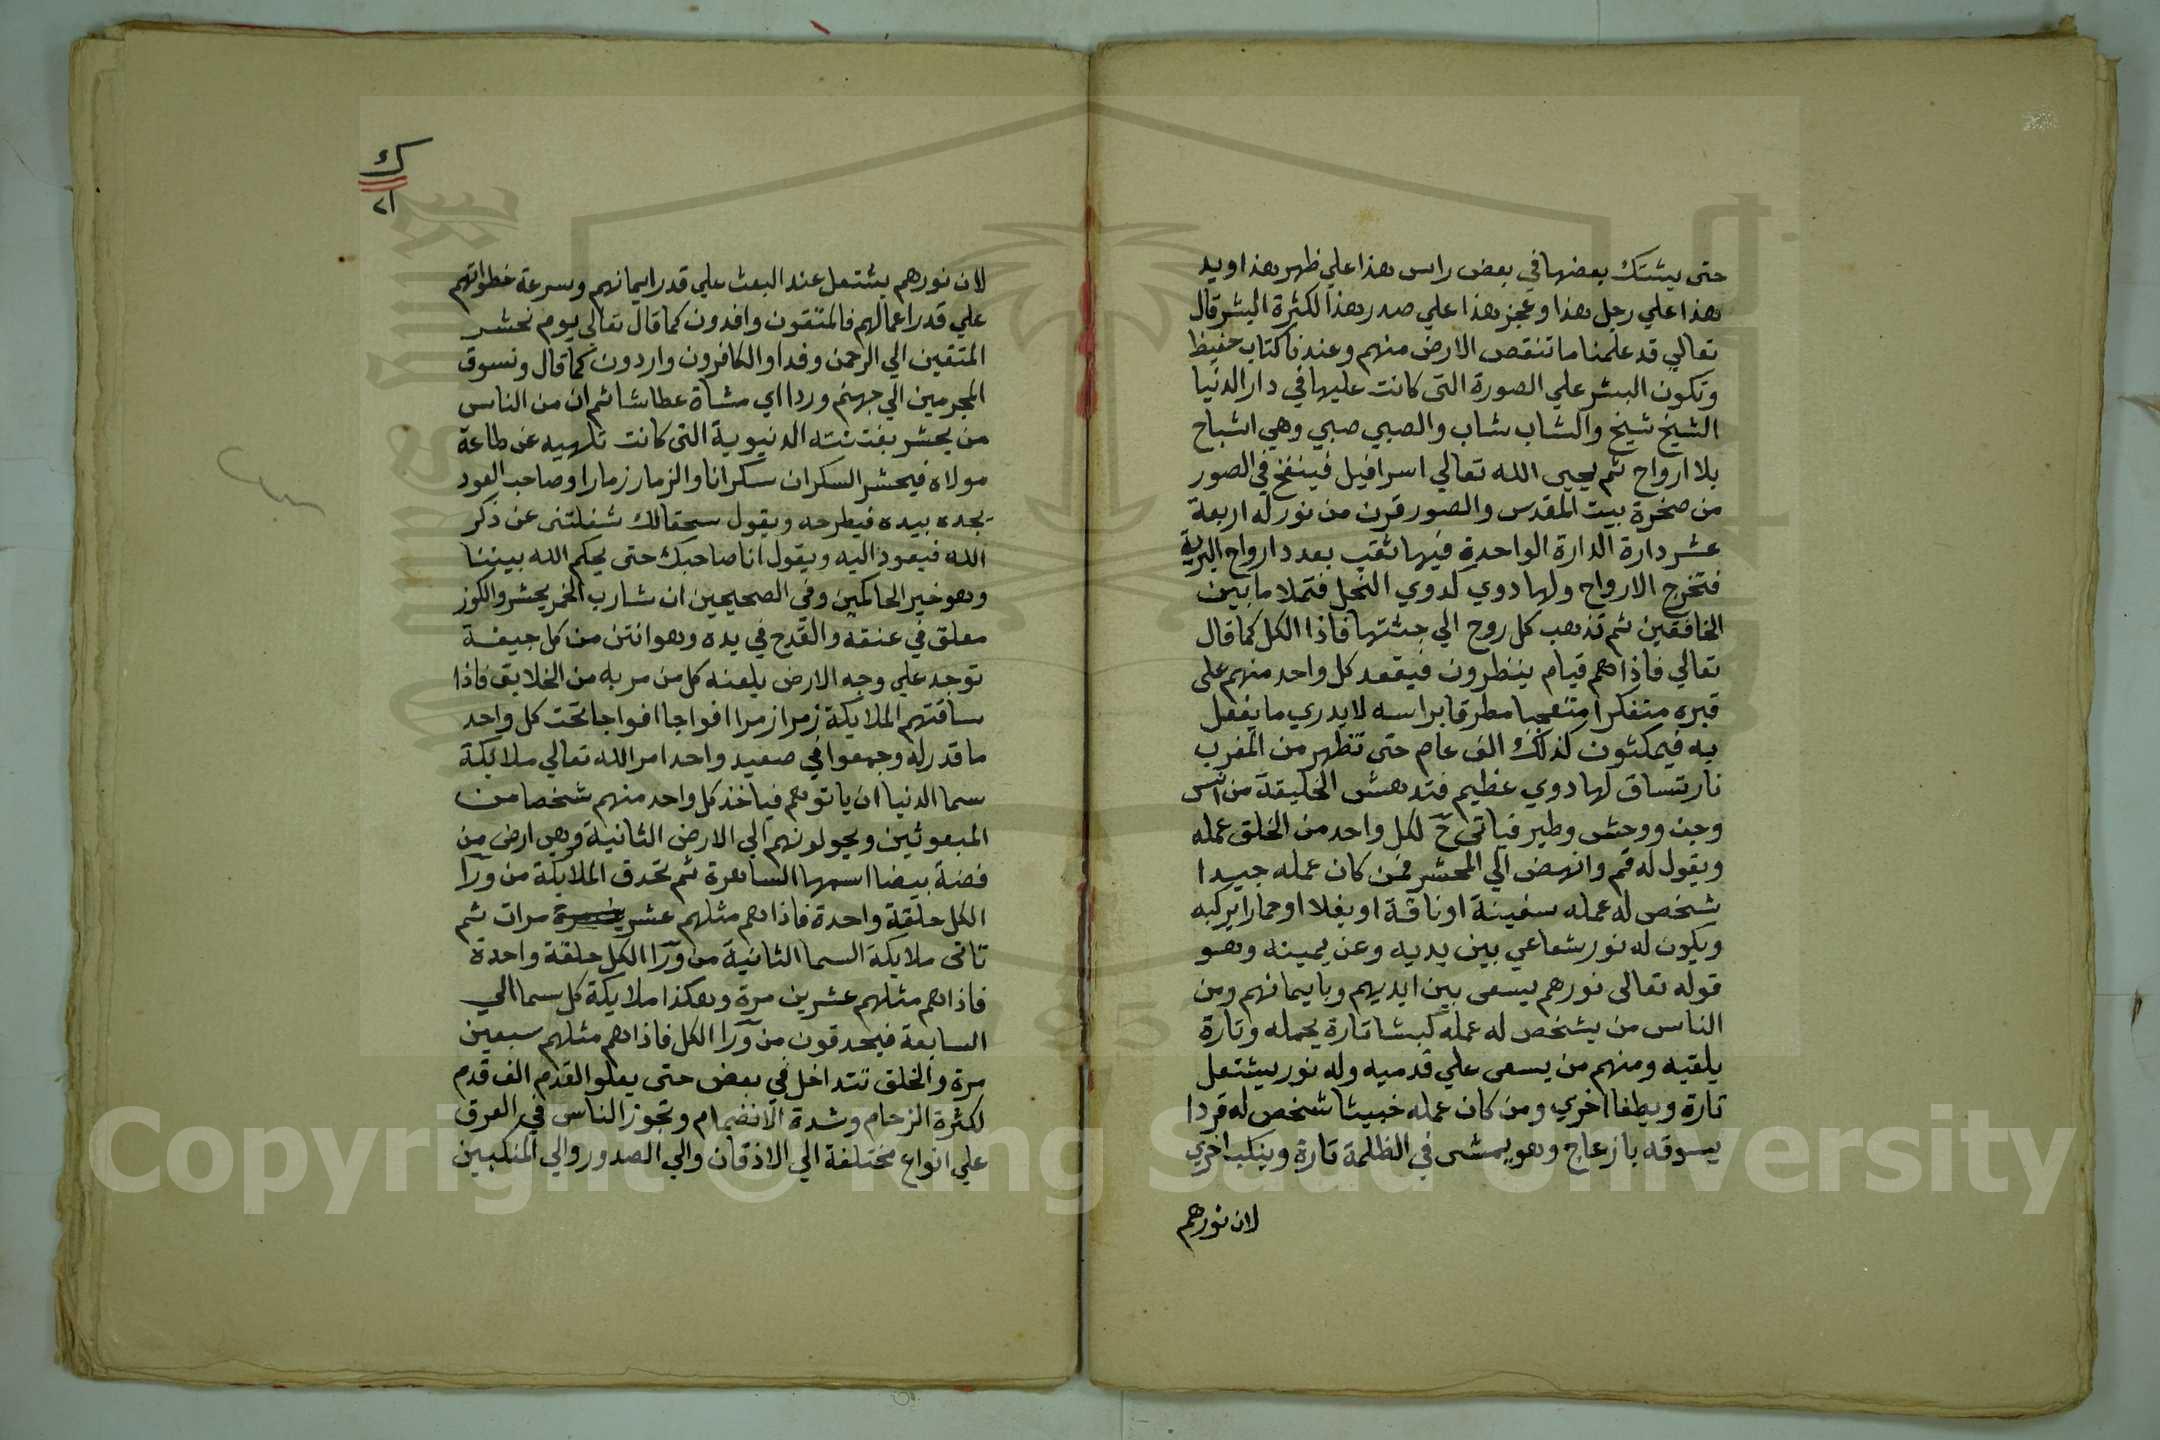 حتى يشتك بعضها في بعض راس هذا علي ظهر هذا ويد
هذا علي رجل هذا وعجز هذا علي صدر هذا لكثرة البشر قال
تعالي قد علمنا ما تنقص الارض منهم وعندنا كتاب حفيظ
وتكون البشر علي الصورة التي كانت عليها في دار الدنيا
الشيخ شيخ والشاب شاب والصبي صبي وهي اشباح
بلا ارواح ثم يحيى الله تعالي اسرافيل فينفخ في الصور
من صخرة بيت المقدس والصور قرن من نور له اربعة
عشر دارة الدارة الواحدة فيها ثقب بعدد ارواح البرية
فتخرج الارواح ولها دوي كدوي النحل فتملا ما بين
الخافقين ثم تذهب كل روح الي جثتها فاذا الكل كما قال
تعالي فاذا هم قيام ينظرون فيقعد كل واحد منهم على
قبره متفكرا متعجبا مطرقا براسه لا يدري ما يفعل
به فيمكثون كذلك الف عام حتى تظهر من المغرب
نار تساق لها دوي عظيم فتدهش الخليقة من انس
وجن ووحش وطير فياتي ح لكل واحد من الخلق عمله
ويقول له قم وانهض الي المحشر فمن كان عمله جيدا
شخص له عمله سفينة او ناقة او بغلا او حمارا يركبه
ويكون له نور شعاعي بين يديه وعن يمينه وهو
قوله تعالى نورهم يسعى بين ايديهم وبايمانهم ومن
الناس من يشخص له عمله كبشا تارة يحمله وتارة
يلقيه ومنهم من يسعى علي قدميه وله نور يشتعل
تارة ويطفا اخري ومن كان عمله خبيثا شخص له قردا
يسوقه بازعاج وهو يمشى في الظلمة تارة وينكب اخري
لان نورهم
ك
٢١
لان نورهم يشتعل عند البعث علي قدر ايمانهم وسرعة خطواتهم
علي قدر اعمالهم فالمتقون وافدون كما قال تعالي يوم نحشر
المتقين الي الرحمن وفدا والكافرون واردون كما قال ونسوق
المجرمين الي جهنم وردا اي مشاة عطاشا ثم ان من الناس
من يحشر بفتنته الدنيوية التي كانت تلهيه عن طاعة
مولاه فيحشر السكران سكرانا والزمار زمارا وصاحب العود
يجده بيده فيطرحه ويقول سحقا لك شغلتنى عن ذكر
الله فيعود اليه ويقول انا صاحبك حتى يحكم الله بيننا
وهو خير الحاكمين وفي الصحيحين ان شارب الخمر يحشر والكوز
معلق في عنقه والقدح في يده وهو انتن من كل جيفة
توجد علي وجه الارض يلعنه كل من مر به من الخلايق فاذا
ساقتهم الملايكة زمرا زمرا افواجا افواجا تحت كل واحد
ما قدر له وجمعوا في صعيد واحد امر الله تعالي ملايكة
سما الدنيا ان ياتوهم فياخذ كل واحد منهم شخصا من
المبعوثين ويحولونهم الي الارض الثانية وهي ارض من
فضة بيضا اسمها الساهرة ثم تحدق الملايكة من ورآ
الكل حلقة واحدة فاذا هم مثلهم عشر مرات ثم
تاتى ملايكة السما الثانية من ورآ الكل حلقة واحدة
فاذا هم مثلهم عشرين مرة وهكذا ملايكة كل سما الي
السابعة فيحدقون من ورآ الكل فاذا هم مثلهم سبعين
مرة والخلق تتداخل في بعض حتى يعلو القدم الف قدم
لكثرة الزحام وشدة الانضمام وتجوز الناس في العرق
علي انواع مختلفة الي الاذقان والي الصدور والي المنكبين
Copyright © King Saud University